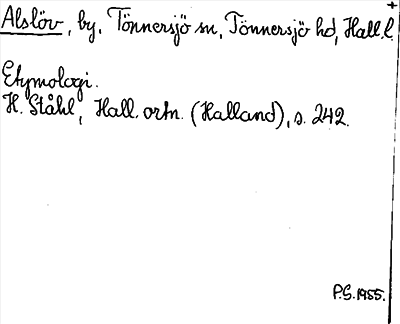 Alslöv, by, Tönnersjö sn, Tönnersjö hd, Hall. l.
Etymologi.
H. Ståhl, Hall. ortn. (Halland), s. 242.
P.S. 1955.